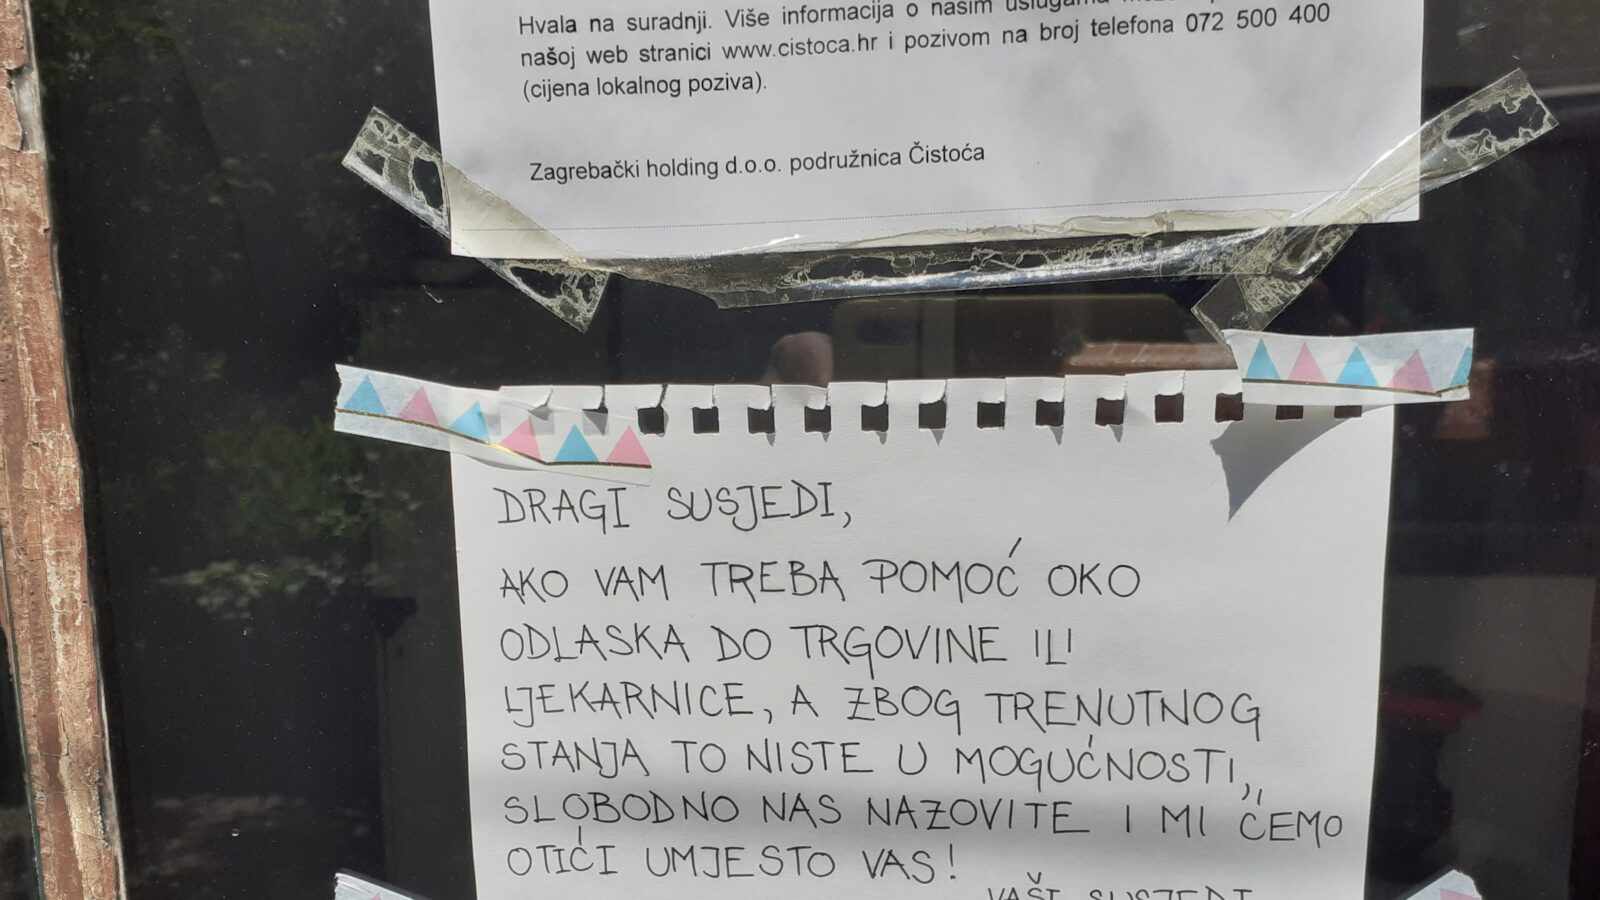 Hvala na suradnji. Više informacija o našim uslugama
našoj web stranici www.cistoca.hr i pozivom na broj telefona 072 500 400
(cijena lokalnog poziva).
Zagrebački holding d.o.o. podružnica Čistoća
DRAGI SUSJEDI,
AKO VAM TREBA POMOĆ OKO
ODLASKA DO TRGOVINE ILI
LJEKARNICE, A ZBOG TRENUTNOG
STANJA TO NISTE U MOGUĆNOSTI,
SLOBODNO NAS NAZOVITE I MI ĆEMO
OTIĆI UMJESTO VAS!
VAŠI SUSJEDI